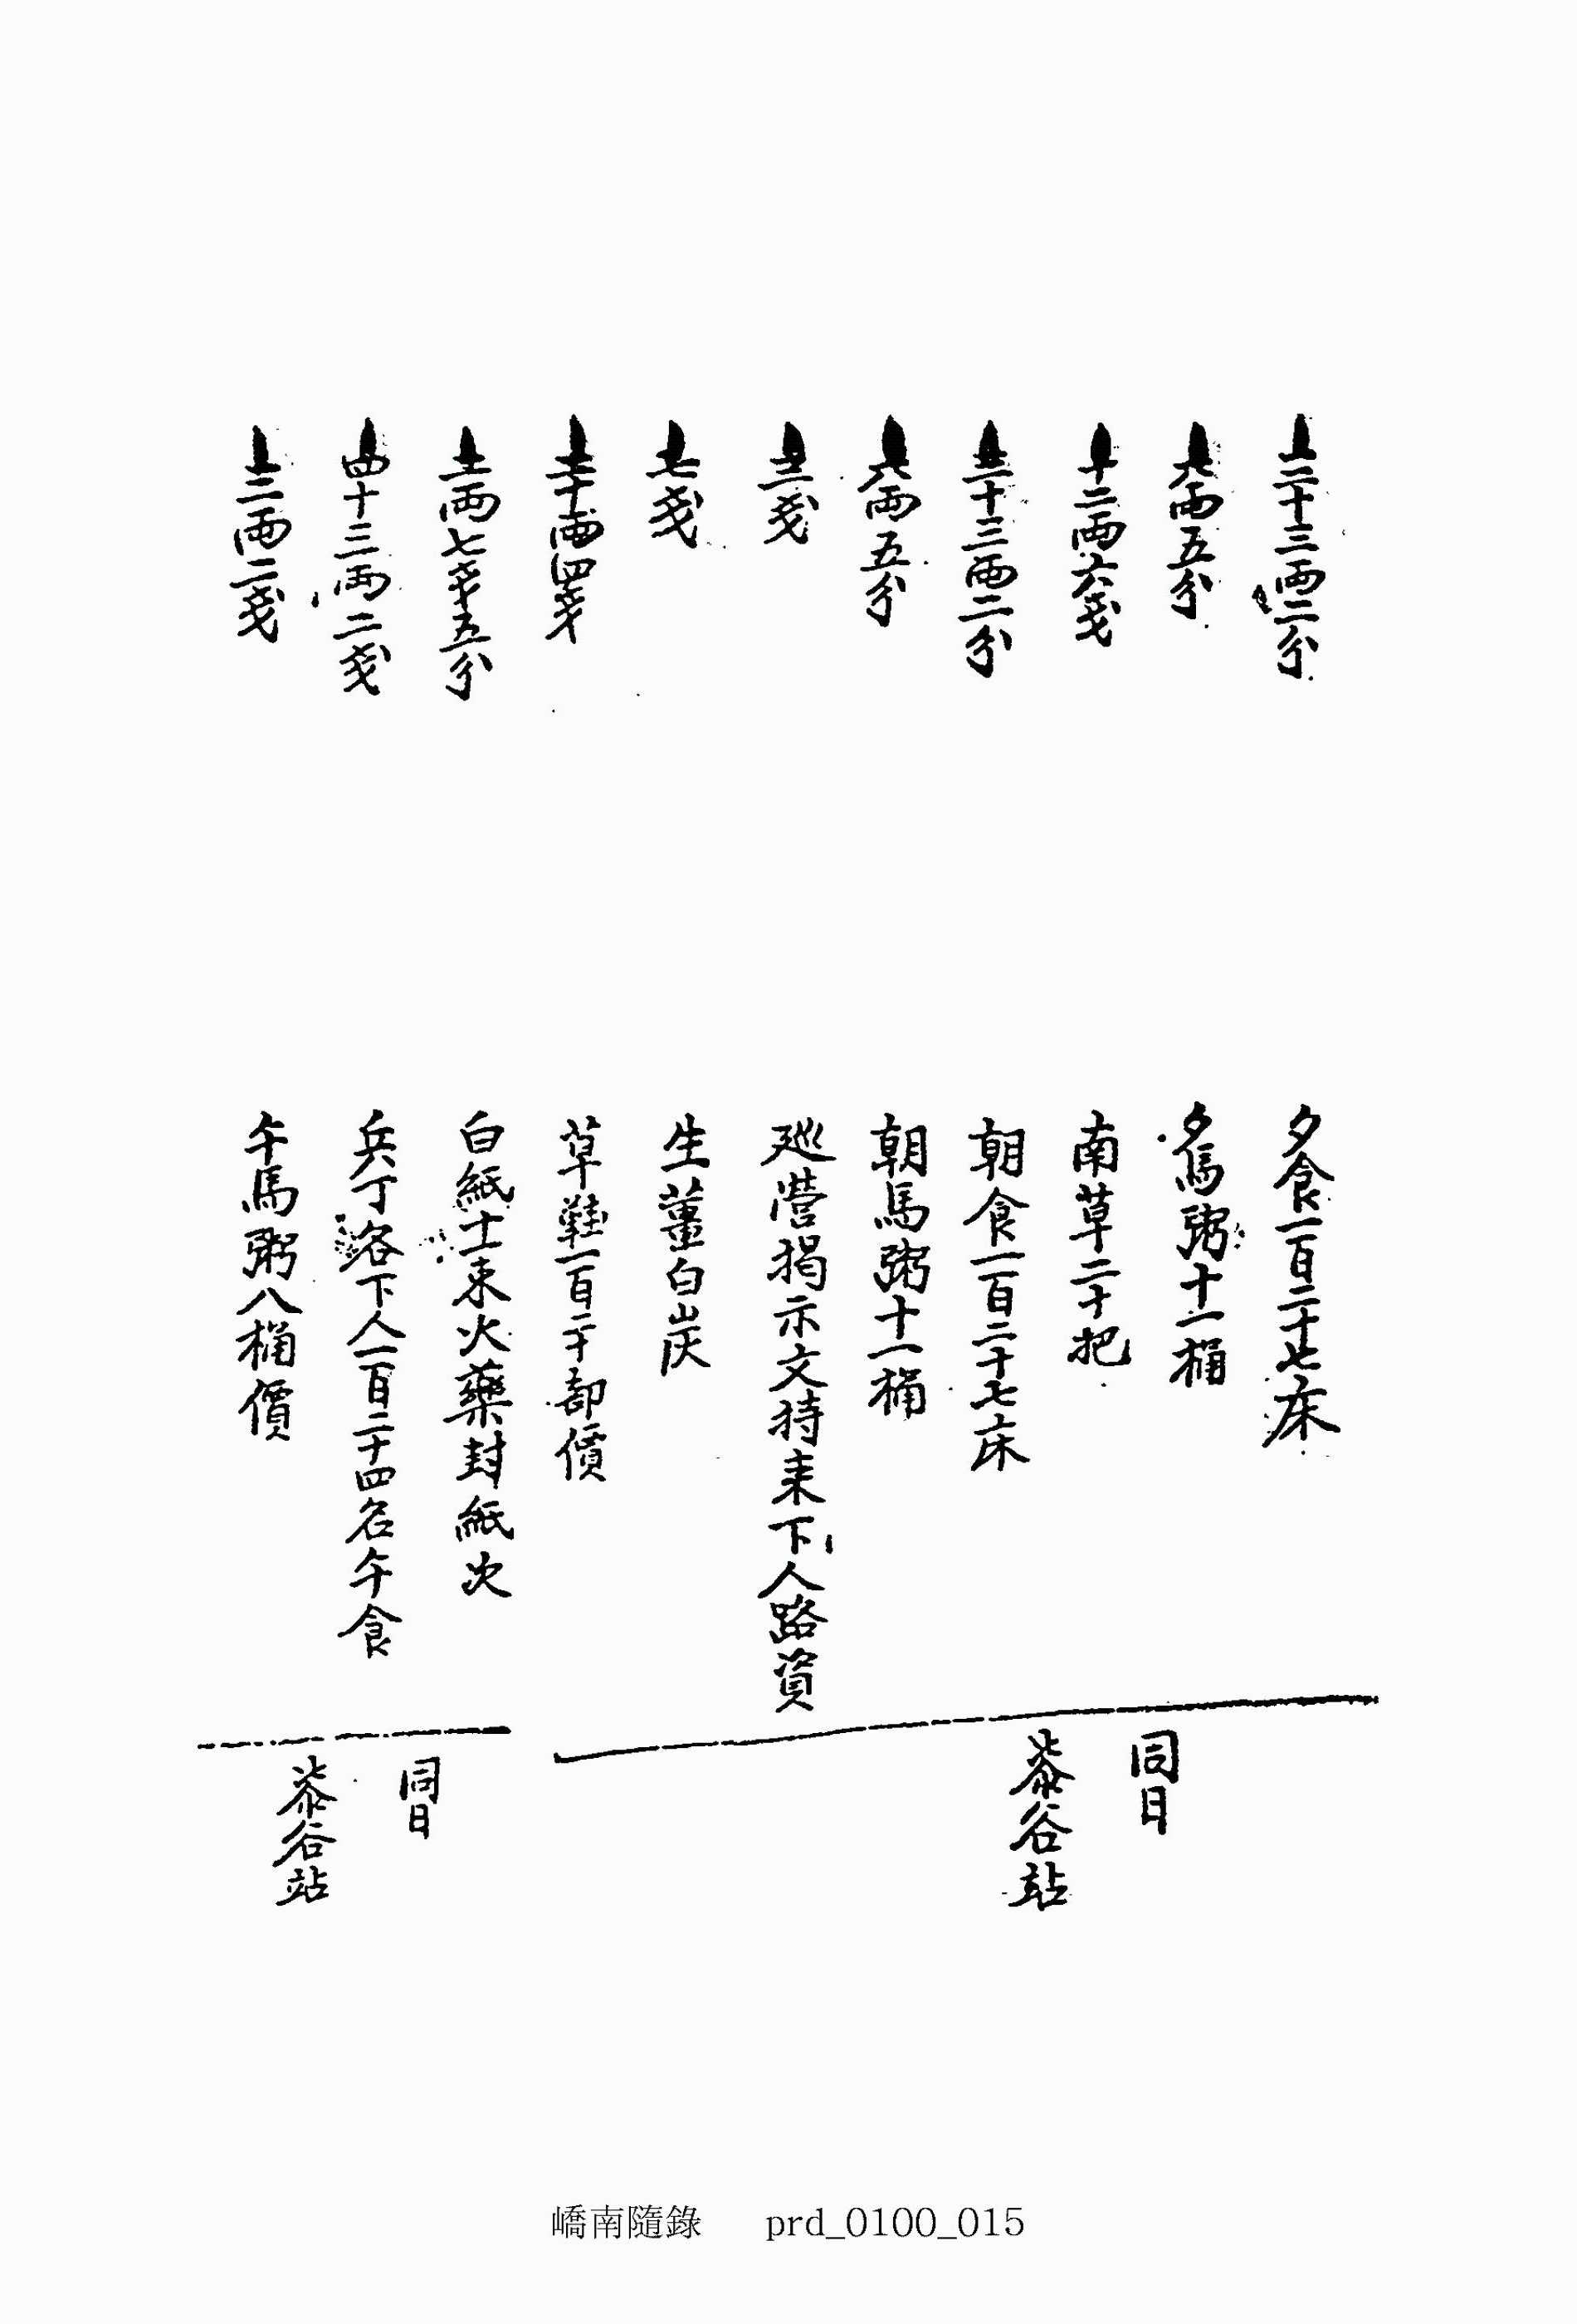 三十三両二分 夕食一百二十七床
六両五分 夕馬粥十一桶
十二両六戔 南草二十把
三十三両二分 朝食一百二十七床
六両五分 朝馬粥十一桶
三戔 巡營揭示文持来下人路資
七戔 生薑白炭
二十両四戔 草鞋一百二十部價
同日
柒谷站
一両七戔五分 白紙束火藥封紙次
四十三両二戔 兵丁洛下人一百二十四名午食
二両二戔 午馬粥八桶價
同日
柒谷站
嶠南隨錄 prd_0100_015